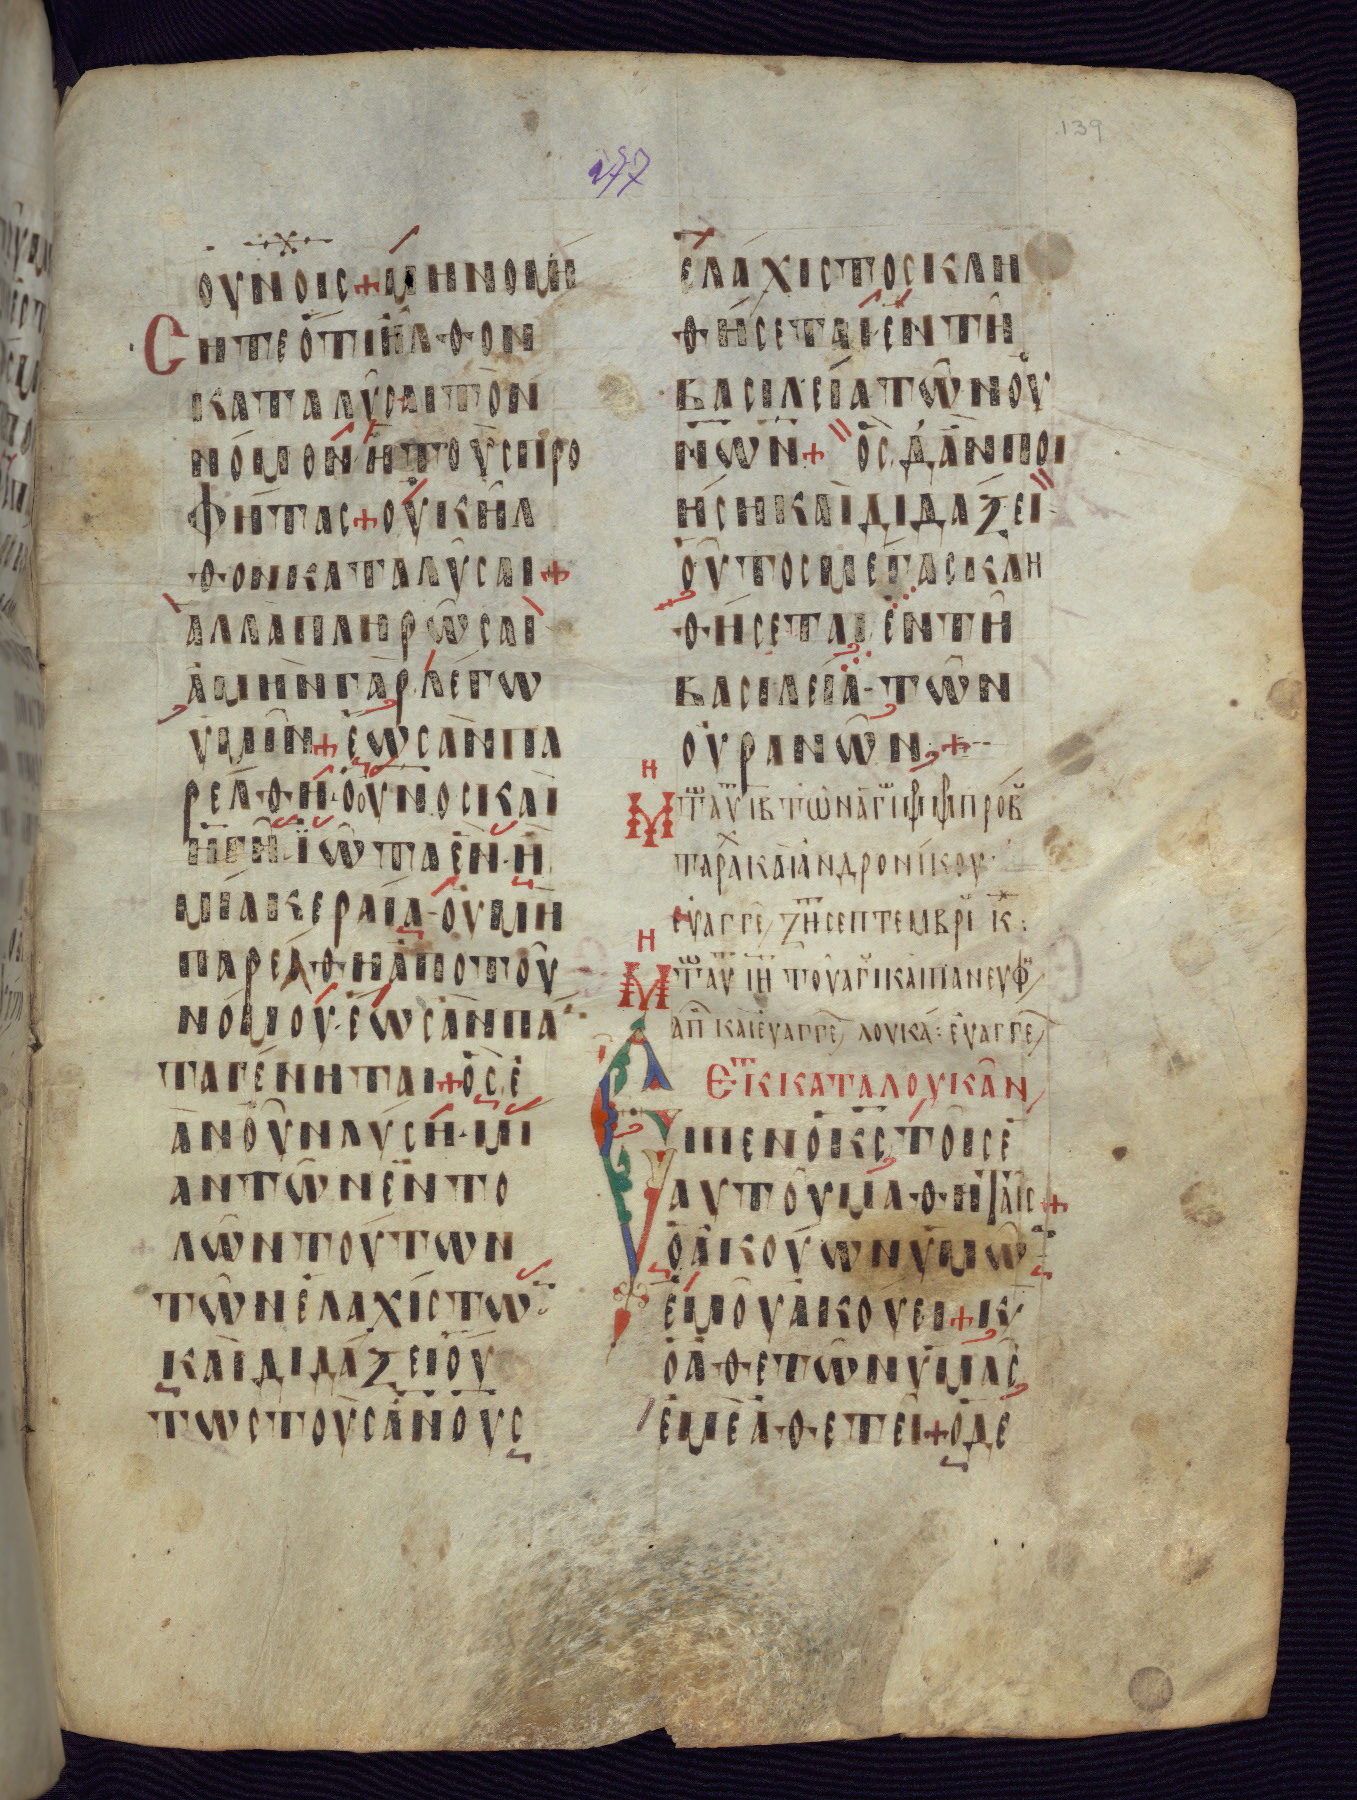 139
177
ΟΥΝΟΙΣ+ΜΗΝΟΜΗ
СΗΤΕΟΤΙΗΛΘΟΝ
ΚΑΤΑΛΥСΑΙΤΟΝ
ΝΟΜΟΝΗΤΟΥСΠΡΟ
ΦΗΤΑС+ΟΥΚΗΛ
ΘΟΝΚΑΤΑΛΥСΑΙ+
ΑΛΛΑΠΛΗΡΩСΑΙ
ΑΜΗΝΓΑΡΛΕΓΩ
ΥΜΙΝ+ΕΩСΑΝΠΑ
ΡΕΛΘΗ·ΟΟΥΝΟСΚΑΙ
ΗΓΗ·ΙΩΤΑΕΝ·Η
ΜΙΑΚΕΡΑΙΑ·ΟΥΜΗ
ΠΑΡΕΛΘΗΑΠΟΤΟΥ
ΝΟΜΟΥ·ΕΩСΑΝΠΑ
ΤΑΓΕΝΗΤΑΙ+ΟСΕ
ΑΝΟΥΝΛΥСΗ·ΜΙ
ΑΝΤΩΝΕΝΤΟ
ΛΩΝΤΟΥΤΩΝ
ΤΩΝΕΛΑΧΙСΤΩ
ΚΑΙΔΙΔΑΞΕΙΟΥ
ΤΩСΤΟΥСΑΝΟΥС
ΕΛΑΧΙСΤΟСΚΛΗ
ΘΗСΕΤΑΙΕΝΤΗ
ΒΑСΙΛΕΙΑΤΩΝΟΥ
ΝΩΝ+ΟСΔΑΝΠΟΙ
ΗСΗΚΑΙΔΙΔΑΞΕΙ·
ΟΥΤΟСΜΕΓΑСΚΛΗ
ΘΗСΕΤΑΙΕΝΤΗ
ΒΑСΙΛΕΙΑ·ΤΩΝ
ΟΥΡΑΝΩΝ·+
ΤΑΡΑΚΑΙΑΝΔΡΟΝΙΚΟΥ
ΕΥΑΓΓΕ ΖΗ СΕΠΤΕΜΒΡΙ Κ:
ΑΠ ΚΑΙΕΥΑΓΓΕ ΛΟΥΚΑ: ΕΥΑΓΓΕ
ΕΚ ΚΑΤΑΛΟΥΚΑΝ
ΙΠΕΝΟΚС ΤΟΙСΕ
ΑΥΤΟΥΜΑΘΗΤΑΙС+
ΟΑΚΟΥΩΝΥΜΩ
ΕΜΟΥΑΚΟΥΕΙ+Κ
ΟΑΘΕΤΩΝΥΜΑС
ΕΜΕΑΘΕΤΕΙ+ΟΔΕ